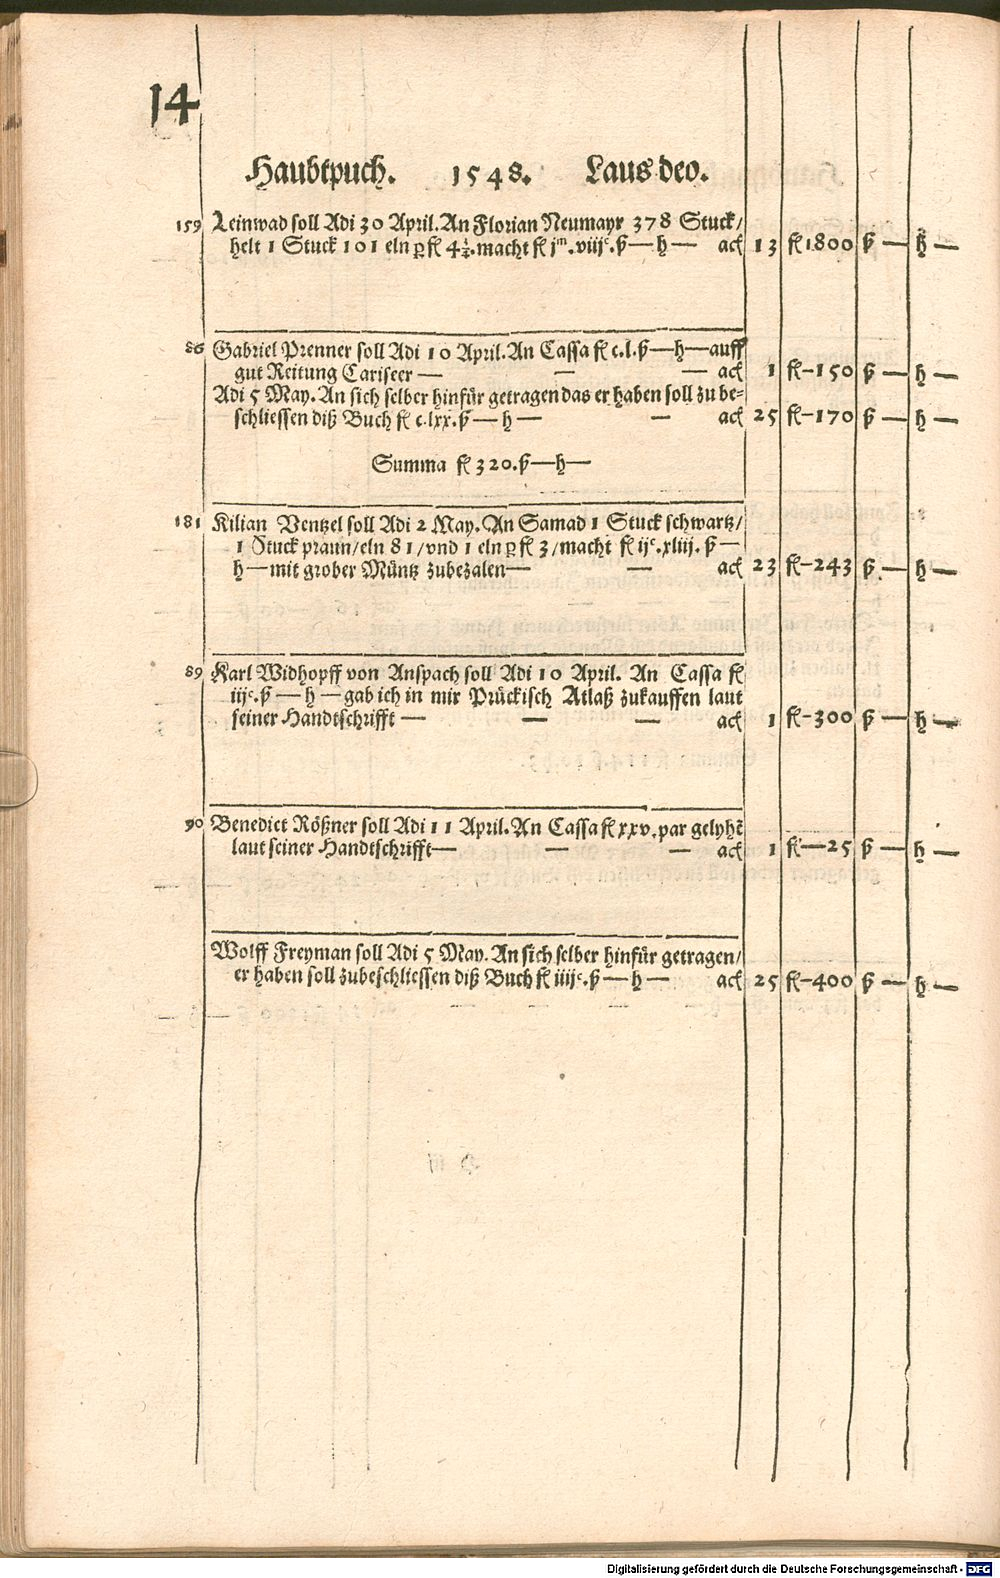 14
Haubtpuch. 1548. Laus deo.
159 Leinwad soll Adi 30 April. An Florian Neumayr 378 Stuck/
helt 1 Stuck 101 eln ꝑ fl 4¾. macht fl jᵐ. viijᶜ. ß — h — act 13 fl 1800 ß — h —
86 Gabriel Prenner soll Adi 10 April. An Cassa fl c.l. ß — h — auff
gut Reitung Cariseer — — — act 1 fl — 150 ß — h —
Adi 5 May. An sich selber hinfür getragen das er haben soll zu be=
schliessen diß Buch fl c.lxx. ß — h — — act 25 fl — 170 ß — h —
Summa fl 320. ß — h —
181 Kilian Ventzel soll Adi 2 May. An Samad 1 Stuck schwartz/
1 Stuck praun/ eln 81/ vnd 1 eln ꝑ fl 3/ macht fl ijᶜ. xliij. ß —
h — mit grober Müntz zubezalen — — act 23 fl — 243 ß — h —
89 Karl Widhopff von Anspach soll Adi 10 April. An Cassa fl
iijᶜ. ß — h — gab ich in mir Prückisch Atlaß zukauffen laut
seiner Handtschrifft — — — act 1 fl — 300 ß — h —
90 Benedict Rößner soll Adi 11 April. An Cassa fl xxv. par gelyhẽ
laut seiner Handtschrifft — — — act 1 fl — 25 ß — h —
Wolff Freyman soll Adi 5 May. An sich selber hinfür getragen/
er haben soll zubeschliessen diß Buch fl iiijᶜ. ß — h — act 25 fl — 400 ß — h —
Digitalisierung gefördert durch die Deutsche Forschungsgemeinschaft - DFG